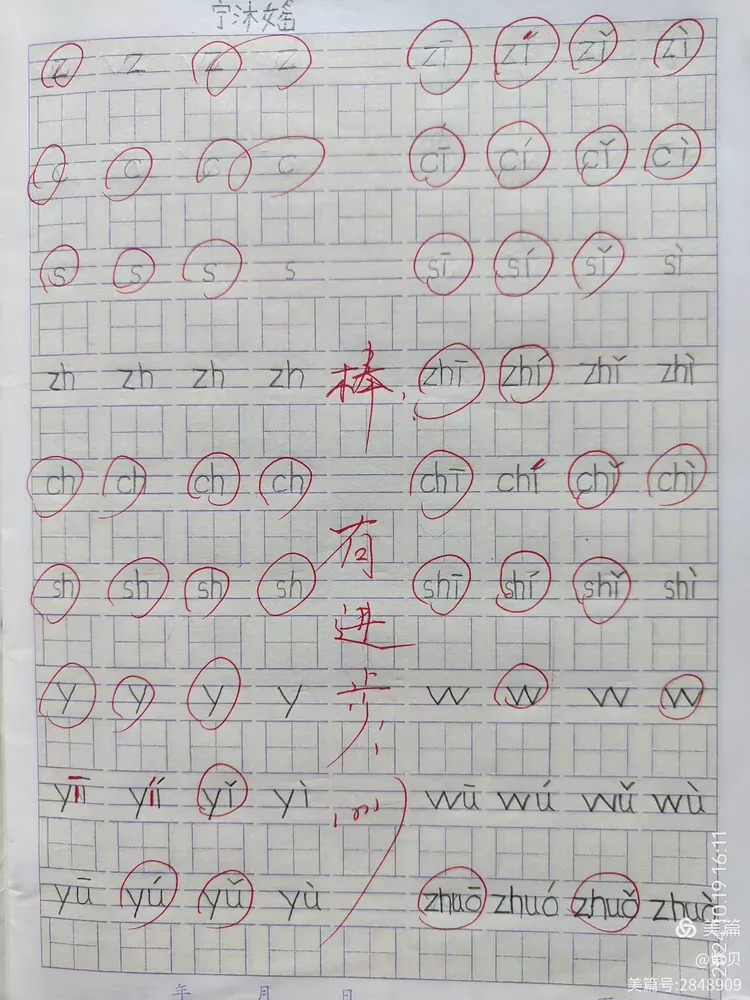 宁沐瑶
z z z z zī zí zǐ zì
c c c c cī cí cǐ cì
s s s s sī sí sǐ sì
zh zh zh zh 棒, zhī zhí zhǐ zhì
ch ch ch ch chī chí chǐ chì
sh sh sh sh 有 shī shí shǐ shì
进
y y y y 步, w w w w
yī yí yǐ yì wū wú wǔ wù
yū yú yǔ yù zhuō zhuó zhuǒ zhuò
年 月 日
2024.10.19 16:11
美篇
美篇号:2848909